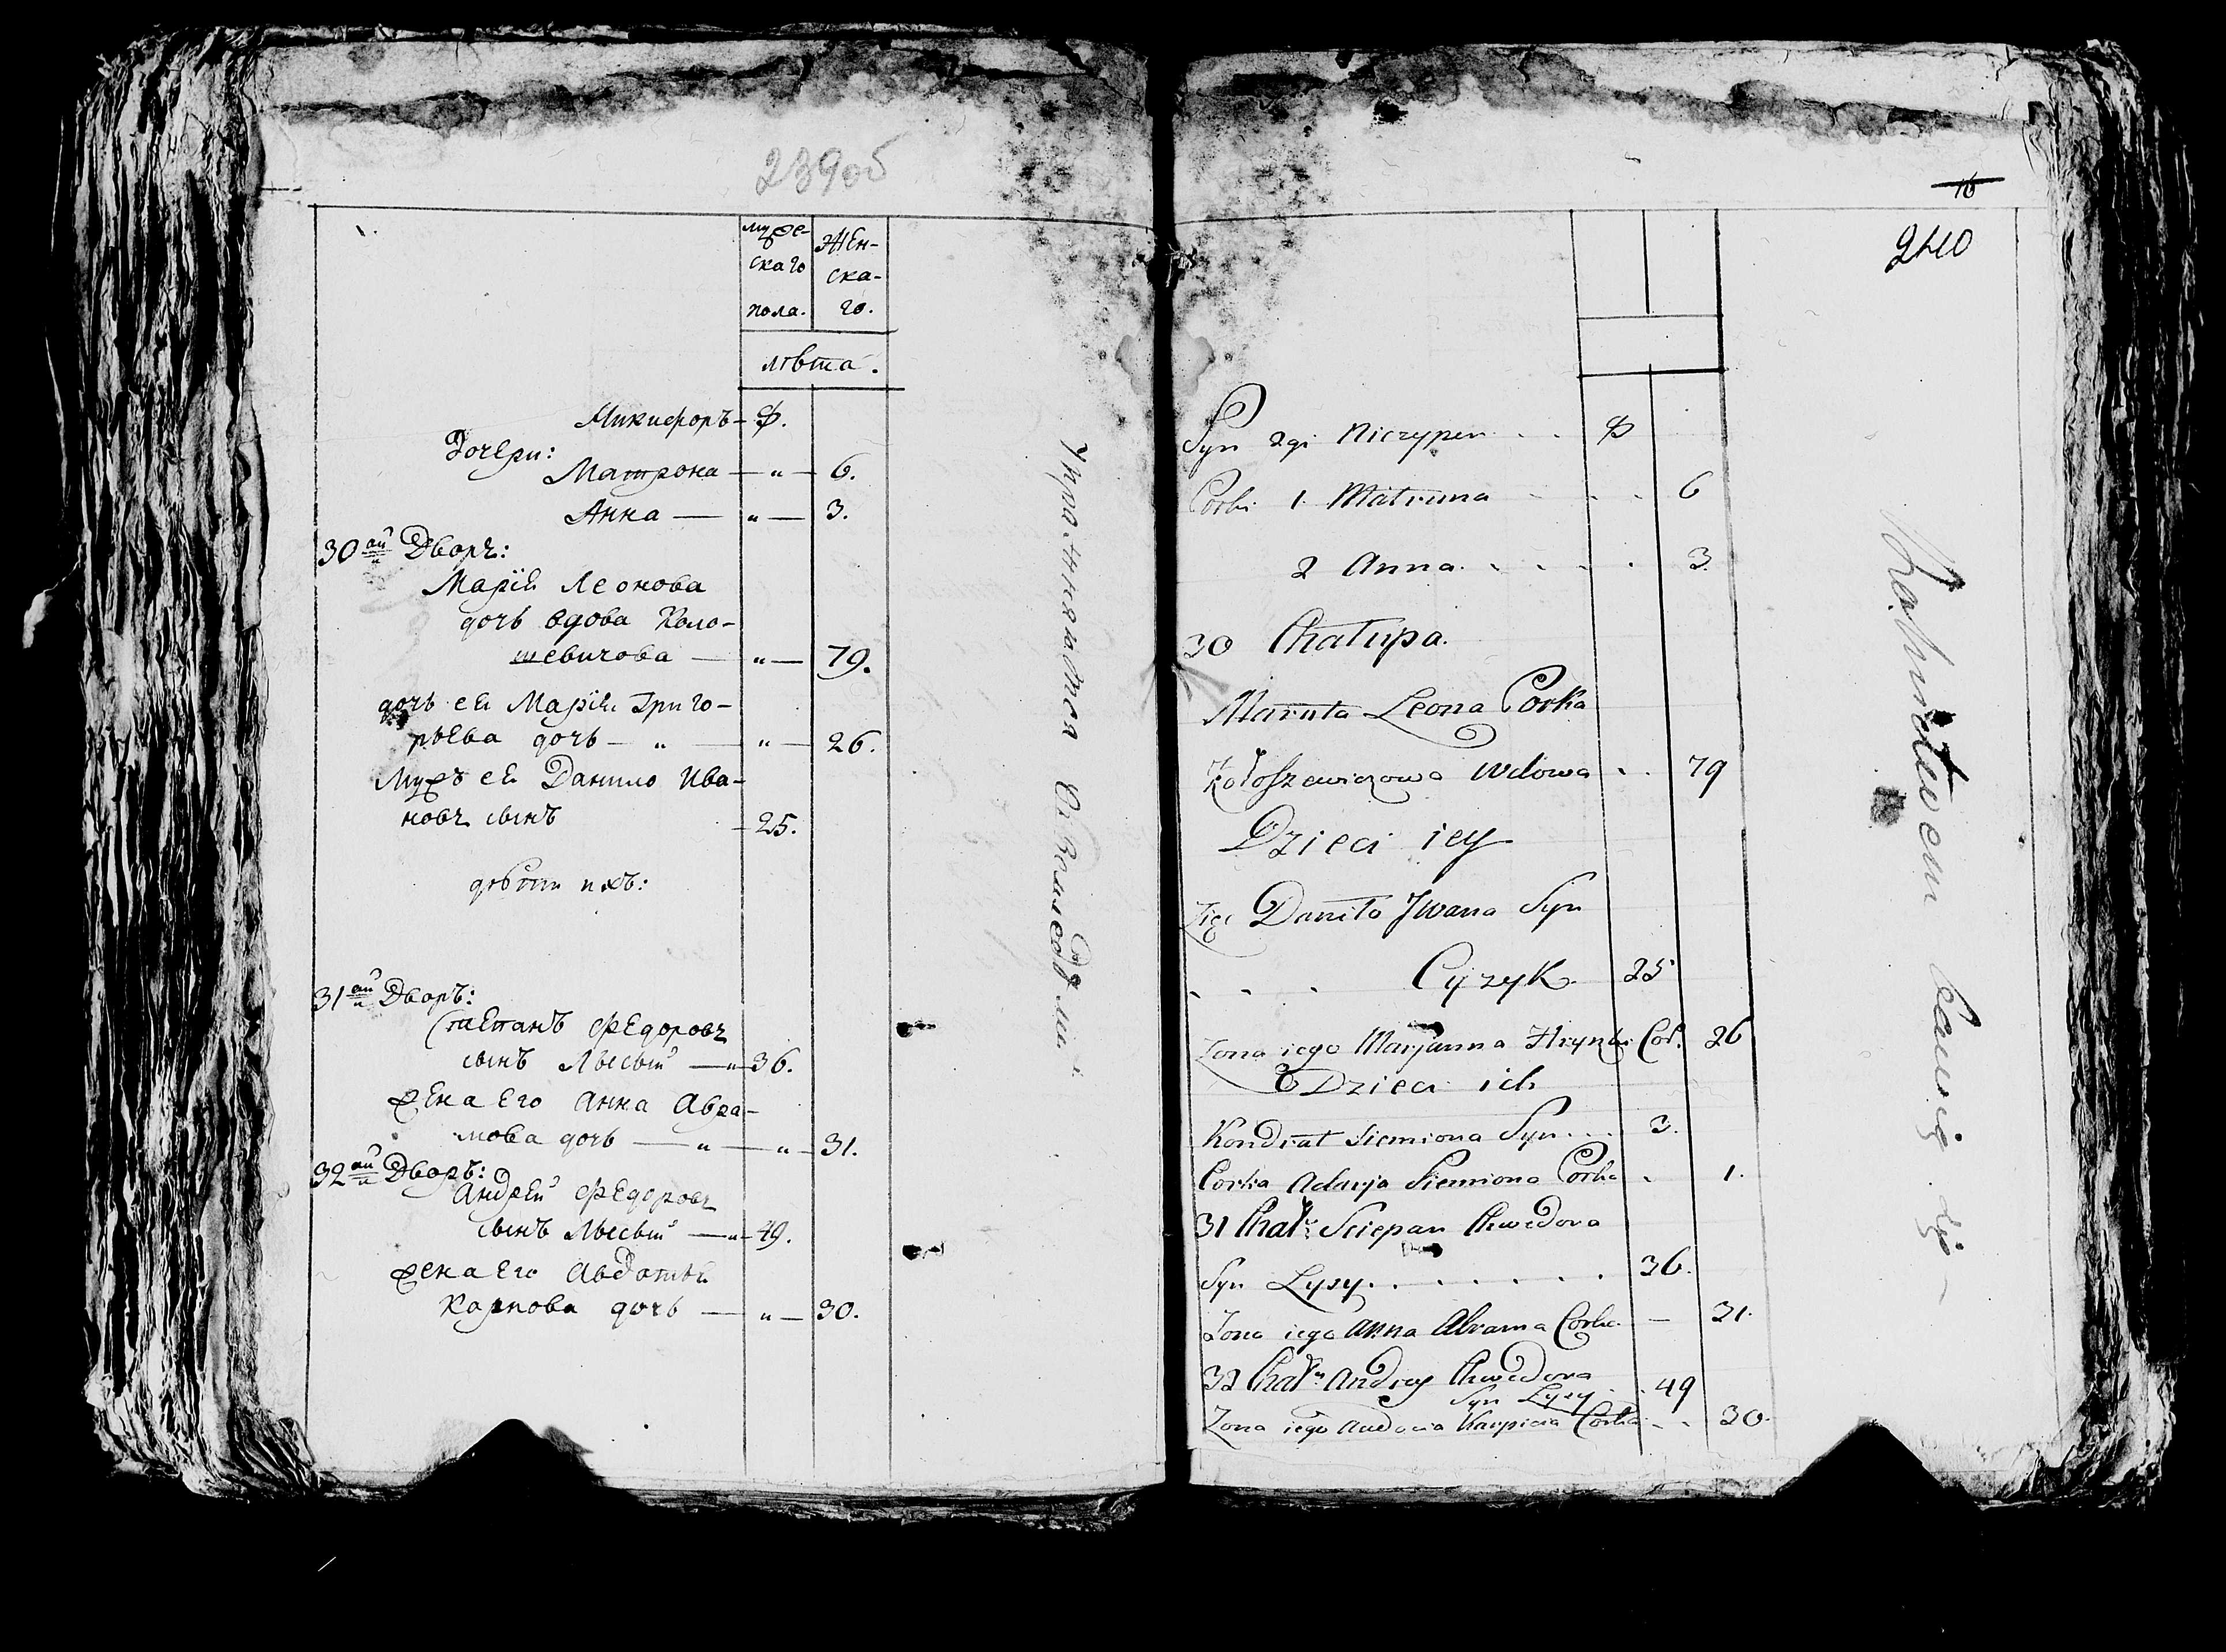 239об
муже-
скаго
пола.
Жен-
ска-
го.
лѣта.
Микифоръ — ½.
Дочери:
Матрона — „ — 6.
Анна — „ — 3.
30ый Дворъ:
Марія Леонова
дочь вдова Коло-
шевичова — „ — 79.
дочь ея Марія Григо-
рьева дочь — „ — „ — 26.
Мужъ ея Данило Ива-
новъ сынъ — 25.
дѣти ихъ:
31ый Дворъ:
Степанъ Федоровъ
сынъ Лысый — „ — 36.
жена его Анна Авра-
мова дочь — „ — „ — 31.
32ый Дворъ:
Андрей Федоровъ
сынъ Лысый — „ — 49.
жена его Авдотья
Карпова дочь — „ — 30.
Упражняются
16
240
Syn 2gi Niczyper . . . ½
Corki 1. Matruna . . . 6
2 Anna . . . . . 3
30 Chałupa.
Maruta Leona Corka
Kołoszewiczowa Wdowa . . 79
Dzieci iey
Zięć Daniło Jwana Syn
. . . Cyzyk 25
Zona iego Marjanna Hrynki Cor: 26
Dzieci ich
Kondrat Siemiona Syn . . . 3.
Corka Adarja Siemiona Corka . 1.
31 Chału: Sciepan Chwedora
Syn Łysy . . . . . . . 36.
Zona iego Anna Abrama Corka — 31.
32 Chału: Andrey Chwedora
Syn Łysy . . 49
Zona iego Audocia Karpicia Corka - . 30.